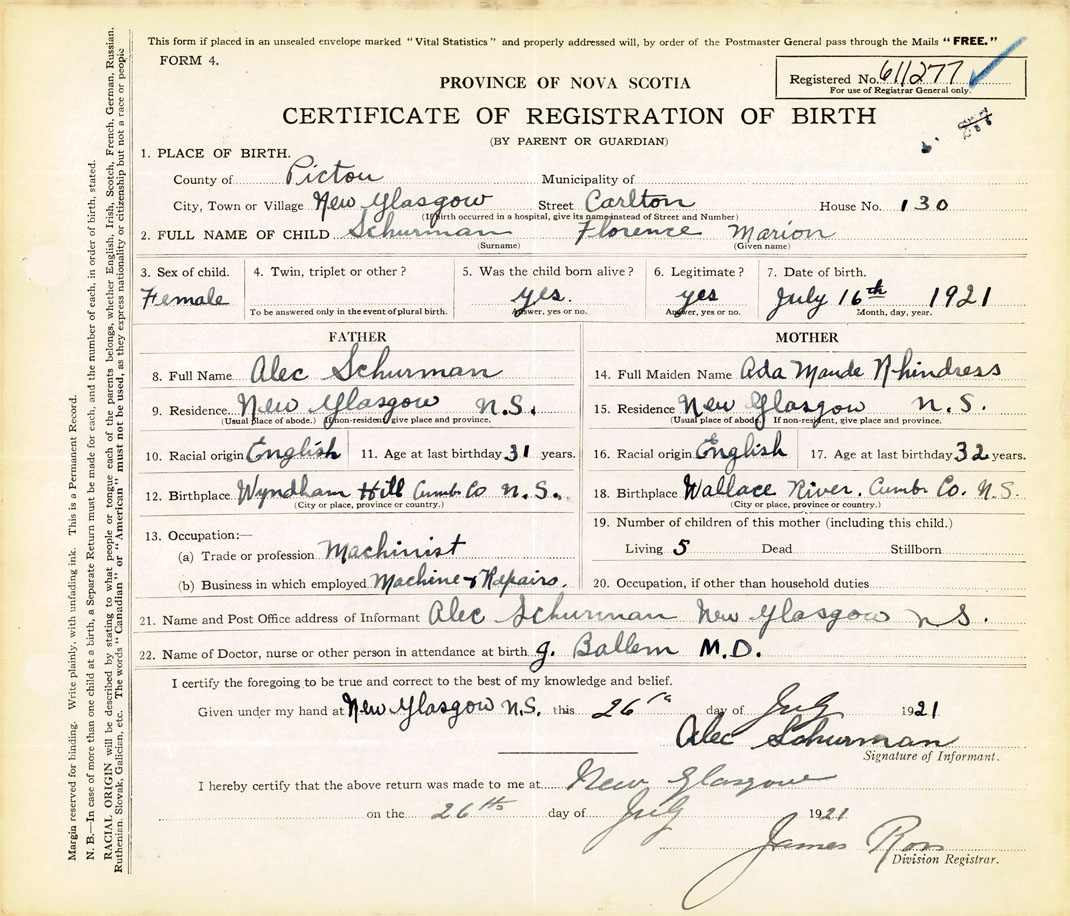 This form if placed in an unsealed envelope marked "Vital Statistics" and properly addressed will, by order of the Postmaster General pass through the Mails "FREE."
FORM 4.
Registered No. 611277
For use of Registrar General only.
PROVINCE OF NOVA SCOTIA
CERTIFICATE OF REGISTRATION OF BIRTH
(BY PARENT OR GUARDIAN)
1. PLACE OF BIRTH.
County of Pictou Municipality of
City, Town or Village New Glasgow Street Carlton House No. 130
(If birth occurred in a hospital, give its name instead of Street and Number)
2. FULL NAME OF CHILD Schurman Florence Marion
(Surname) (Given name)
3. Sex of child. 4. Twin, triplet or other? 5. Was the child born alive? 6. Legitimate? 7. Date of birth.
Female yes. yes July 16th 1921
To be answered only in the event of plural birth. Answer, yes or no. Answer, yes or no. Month, day, year.
FATHER
8. Full Name Alec Schurman
9. Residence New Glasgow N.S.
(Usual place of abode.) If non-resident, give place and province.
10. Racial origin English 11. Age at last birthday 31 years.
12. Birthplace Wyndham Hill Cumb. Co N.S.
(City or place, province or country.)
13. Occupation:—
(a) Trade or profession Machinist
(b) Business in which employed Machine & Repairs.
MOTHER
14. Full Maiden Name Ada Maude Rhindress
15. Residence New Glasgow N.S.
(Usual place of abode) If non-resident, give place and province.
16. Racial origin English 17. Age at last birthday 32 years.
18. Birthplace Wallace River. Cumbr Co. N.S.
(City or place, province or country.)
19. Number of children of this mother (including this child.)
Living 5 Dead Stillborn
20. Occupation, if other than household duties
21. Name and Post Office address of Informant Alec Schurman New Glasgow N.S.
22. Name of Doctor, nurse or other person in attendance at birth J. Ballem M.D.
I certify the foregoing to be true and correct to the best of my knowledge and belief.
Given under my hand at New Glasgow N.S. this 26th day of July 1921
Alec Schurman
Signature of Informant.
I hereby certify that the above return was made to me at New Glasgow
on the 26th day of July 1921
James Ross
Division Registrar.
Margin reserved for binding. Write plainly, with unfading ink. This is a Permanent Record.
N. B.—In case of more than one child at a birth, a Separate Return must be made for each, and the number of each, in order of birth, stated.
RACIAL ORIGIN will be described by stating to what people or tongue each of the parents belongs, whether English, Irish, Scotch, French, German, Russian,
Ruthenian, Slovak, Galician, etc. The words "Canadian" or "American" must not be used, as they express nationality or citizenship but not a race or people